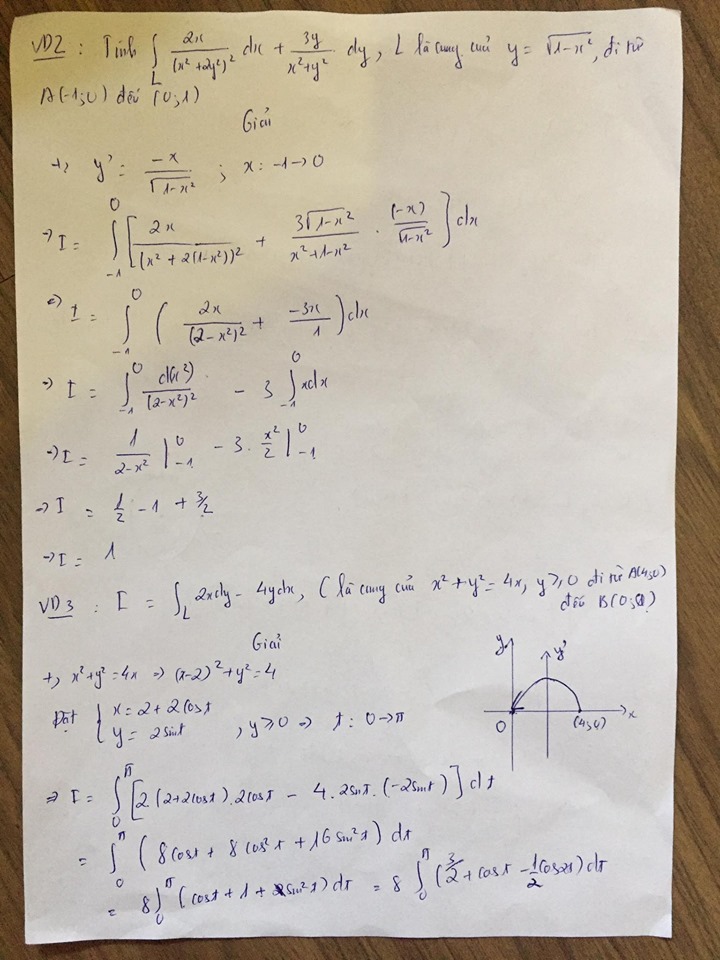 VD2 : Tính ∫_L 2x/(x²+2y²)² dx + 3y/(x²+y²) dy, L là cung của y = √(1-x²), đi từ
A(-1;0) đến (0;1)
Giải
+, y' = -x/√(1-x²) ; x: -1→0
→ I = ∫_{-1}^{0} [ 2x/(x²+2(1-x²))² + 3√(1-x²)/(x²+1-x²) · (-x)/√(1-x²) ] dx
⇔ I = ∫_{-1}^{0} ( 2x/(2-x²)² + -3x/1 ) dx
→ I = ∫_{-1}^{0} d(x²)/(2-x²)² - 3 ∫_{-1}^{0} xdx
→ I = 1/(2-x²) |_{-1}^{0} - 3. x²/2 |_{-1}^{0}
→ I = 1/2 - 1 + 3/2
→ I = 1
VD3 : I = ∫_L 2xdy - 4ydx, C là cung của x²+y² = 4x, y ≥ 0 đi từ A(4;0)
đến B(0;0)
Giải
+, x²+y² = 4x ⇒ (x-2)²+y² = 4
Đặt { x = 2+2cost
y = 2sint , y ≥ 0 ⇒ t: 0→π
y y'
0 (4;0) x
⇒ I = ∫_0^π [2(2+2cost).2cost - 4.2sint.(-2sint)] dt
= ∫_0^π (8cost + 8cos²t + 16sin²t) dt
= 8∫_0^π (cost + 1 + sin²t) dt = 8 ∫_0^π (3/2 + cost - 1/2 cos2t) dt